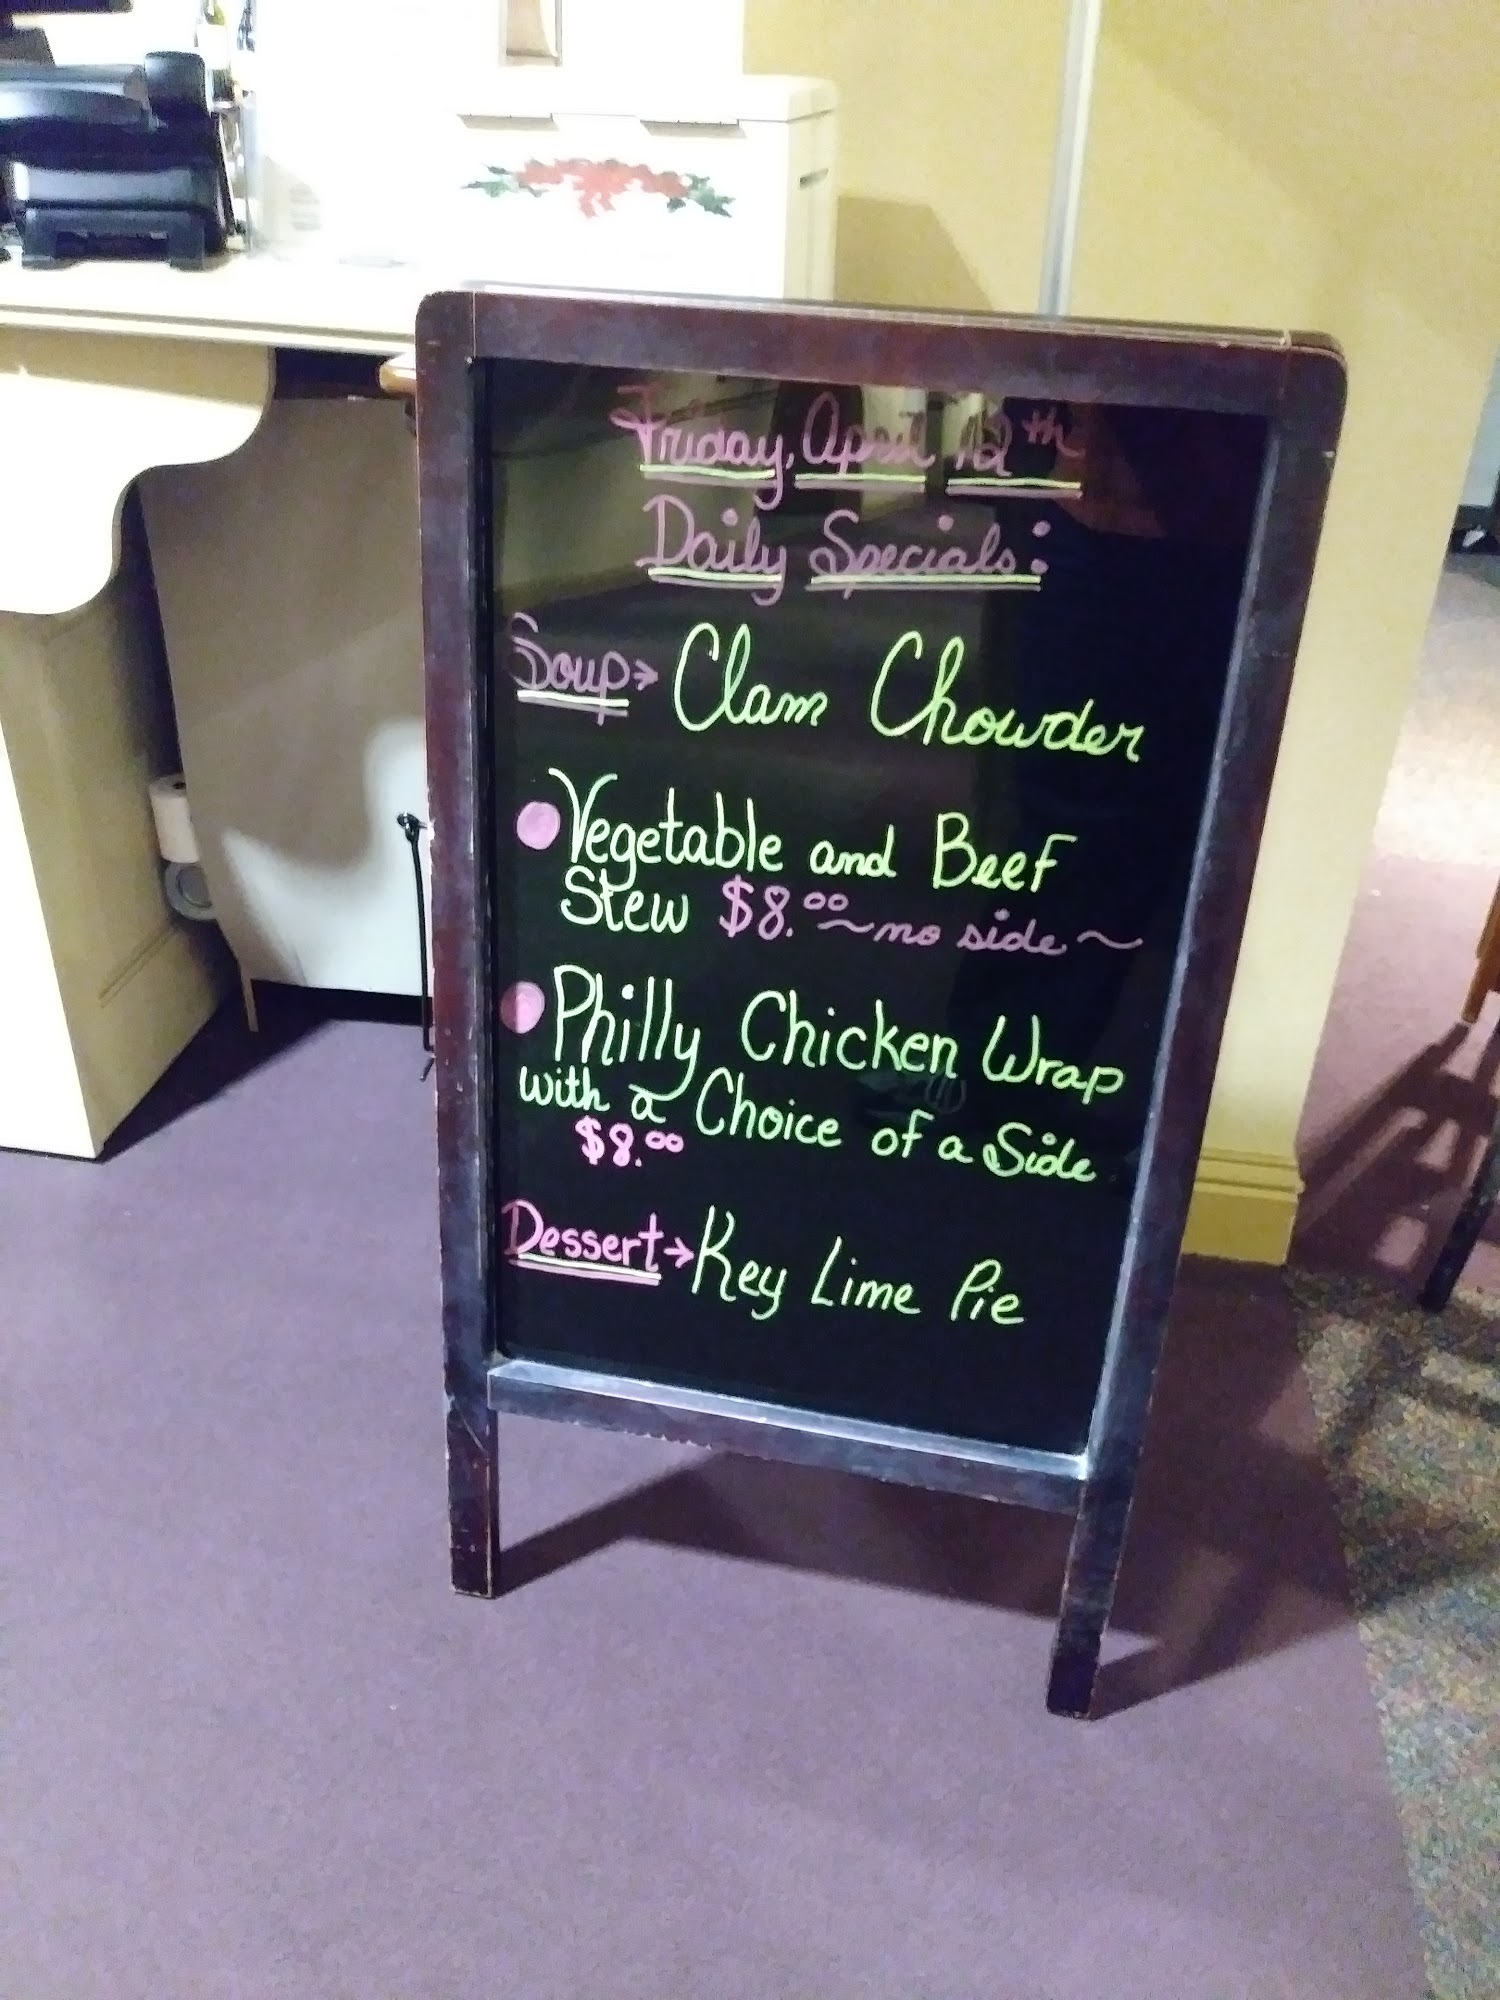 Friday, April 12th
Daily Specials:
Soup→ Clam Chowder
Vegetable and Beef
Stew $8.00 ~no side~
Philly Chicken Wrap
with a Choice of a Side
$8.00
Dessert→ Key Lime Pie